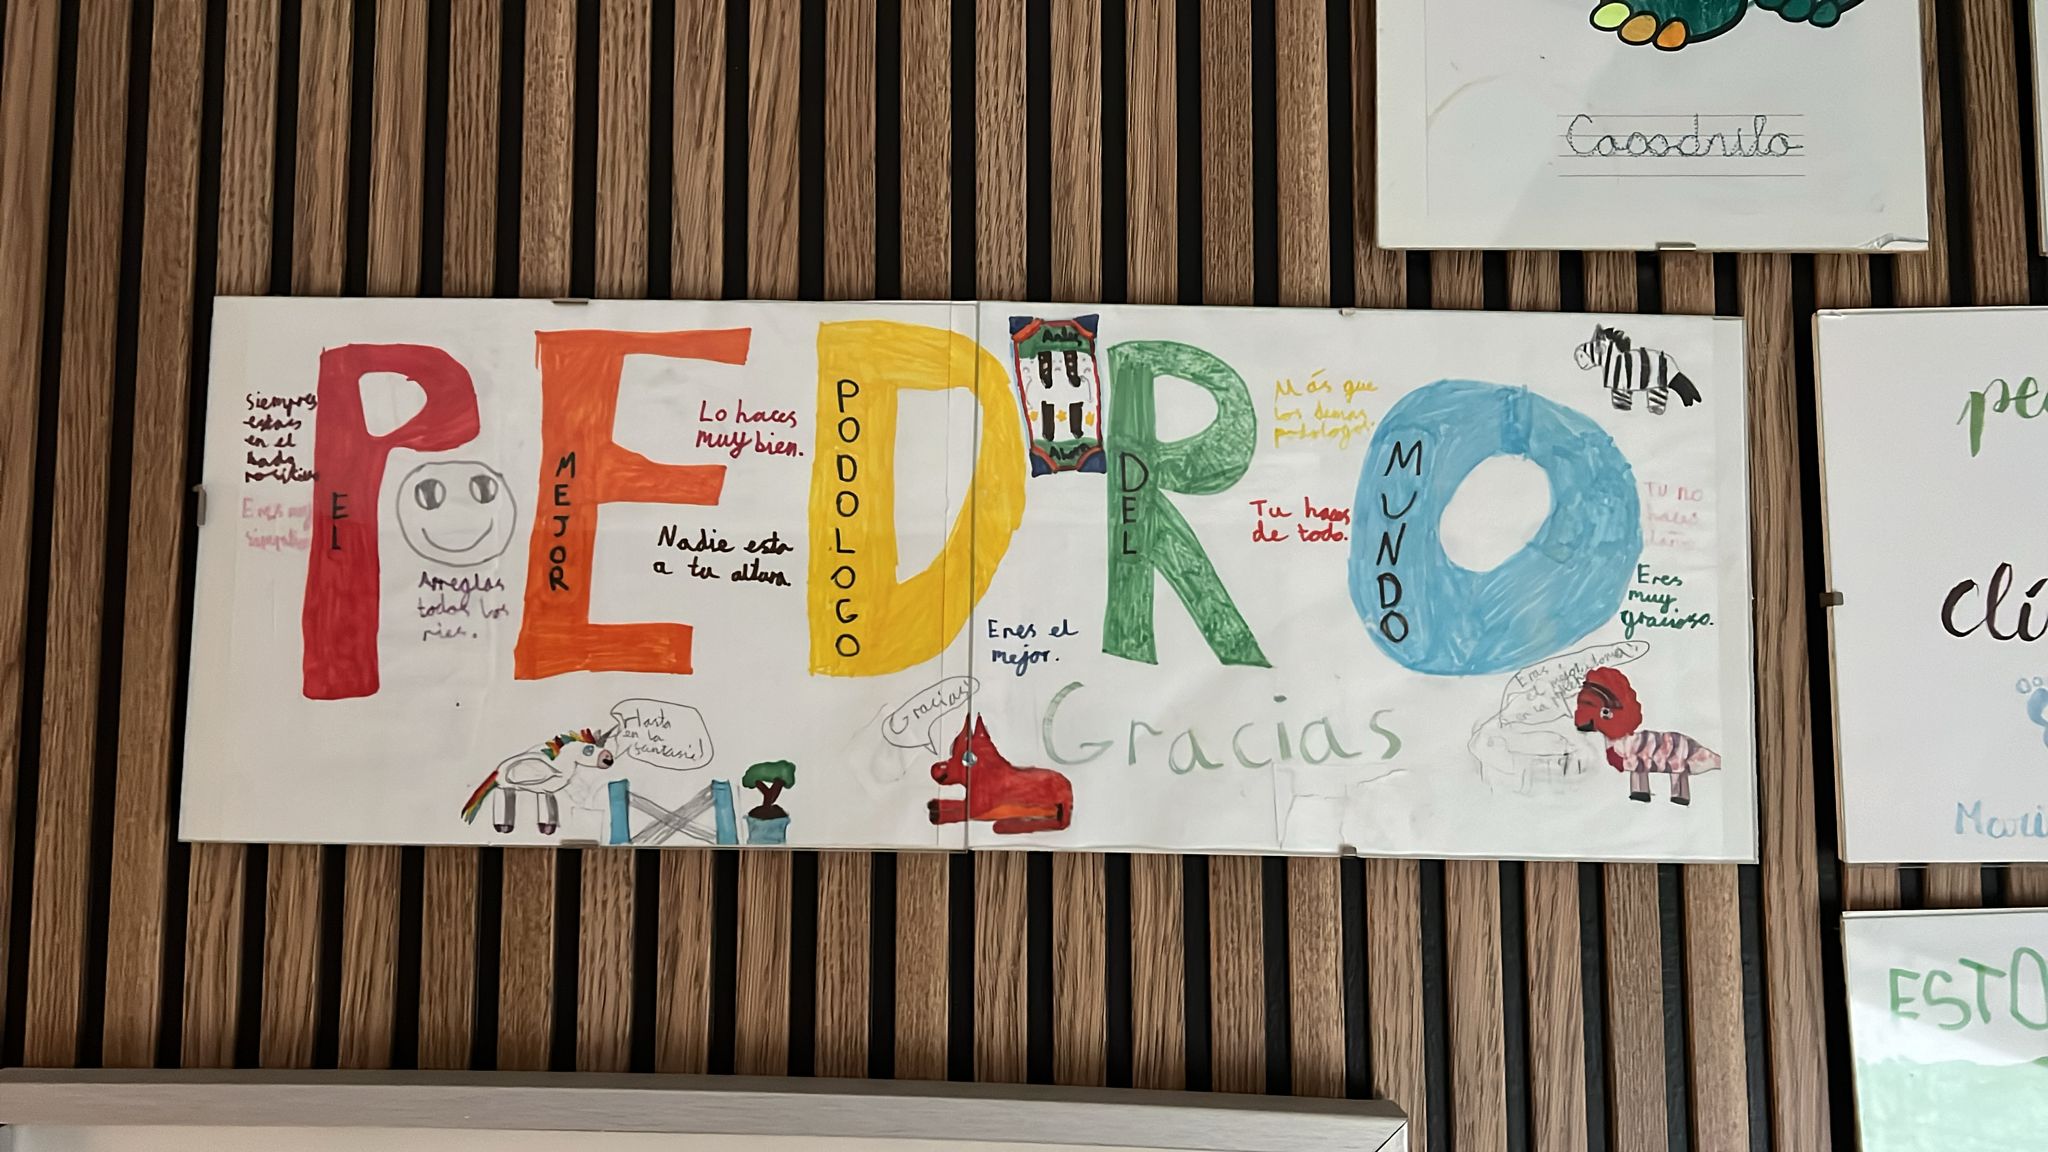 Cocodrilo
PEDRO
EL
MEJOR
PODOLOGO
DEL
MUNDO
siempre
estas
en el
lado
positivo
Eres muy
simpatico
Arreglas
todos los
pies.
Lo haces
muy bien.
Nadie esta
a tu altura.
Eres el
mejor.
Antes
Más que
los demas
podologos.
Tu haces
de todo.
Tu no
haces
daño
Eres
muy
gracioso.
Hasta
en la
fantasia!
Gracias!
Gracias
Eres
el mejor
en la
clí
Mari
ESTO